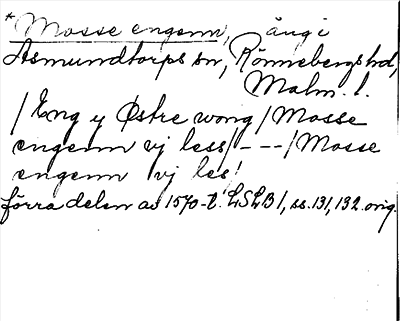 *Mosse engenn, äng i
Asmundtorps sn, Rönnebergs hd,
Malm. l.
/Eng y Østre wong/Mosse
engenn vj less/---/Mosse
engenn vj les!
förra delen av 1570-t. LSLB 1, ss. 131, 132 orig.